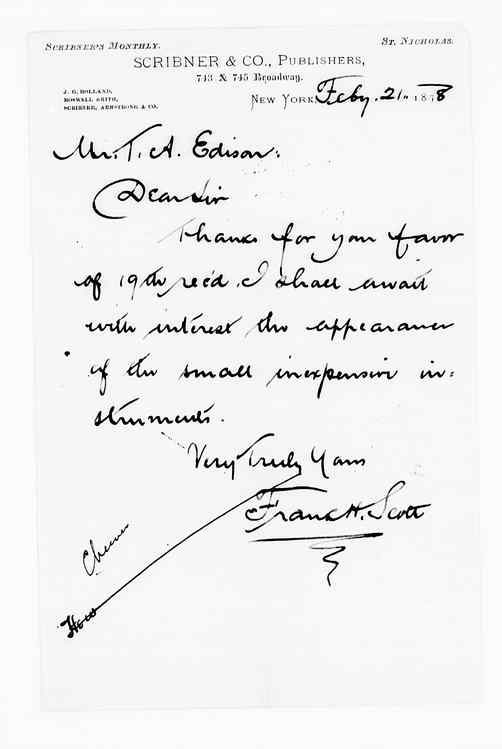 SCRIBNER'S MONTHLY. ST. NICHOLAS.
SCRIBNER & CO., PUBLISHERS,
743 & 745 Broadway.
J. G. HOLLAND,
ROSWELL SMITH,
SCRIBNER, ARMSTRONG & CO.
NEW YORK, Feby. 21. 1878
Mr. T. A. Edison:
Dear Sir
Thanks for your favor
of 19th rec'd. I shall await
with interest the appearance
of the small inexpensive in=
struments.
Very Truly Yours
Frank H. Scott